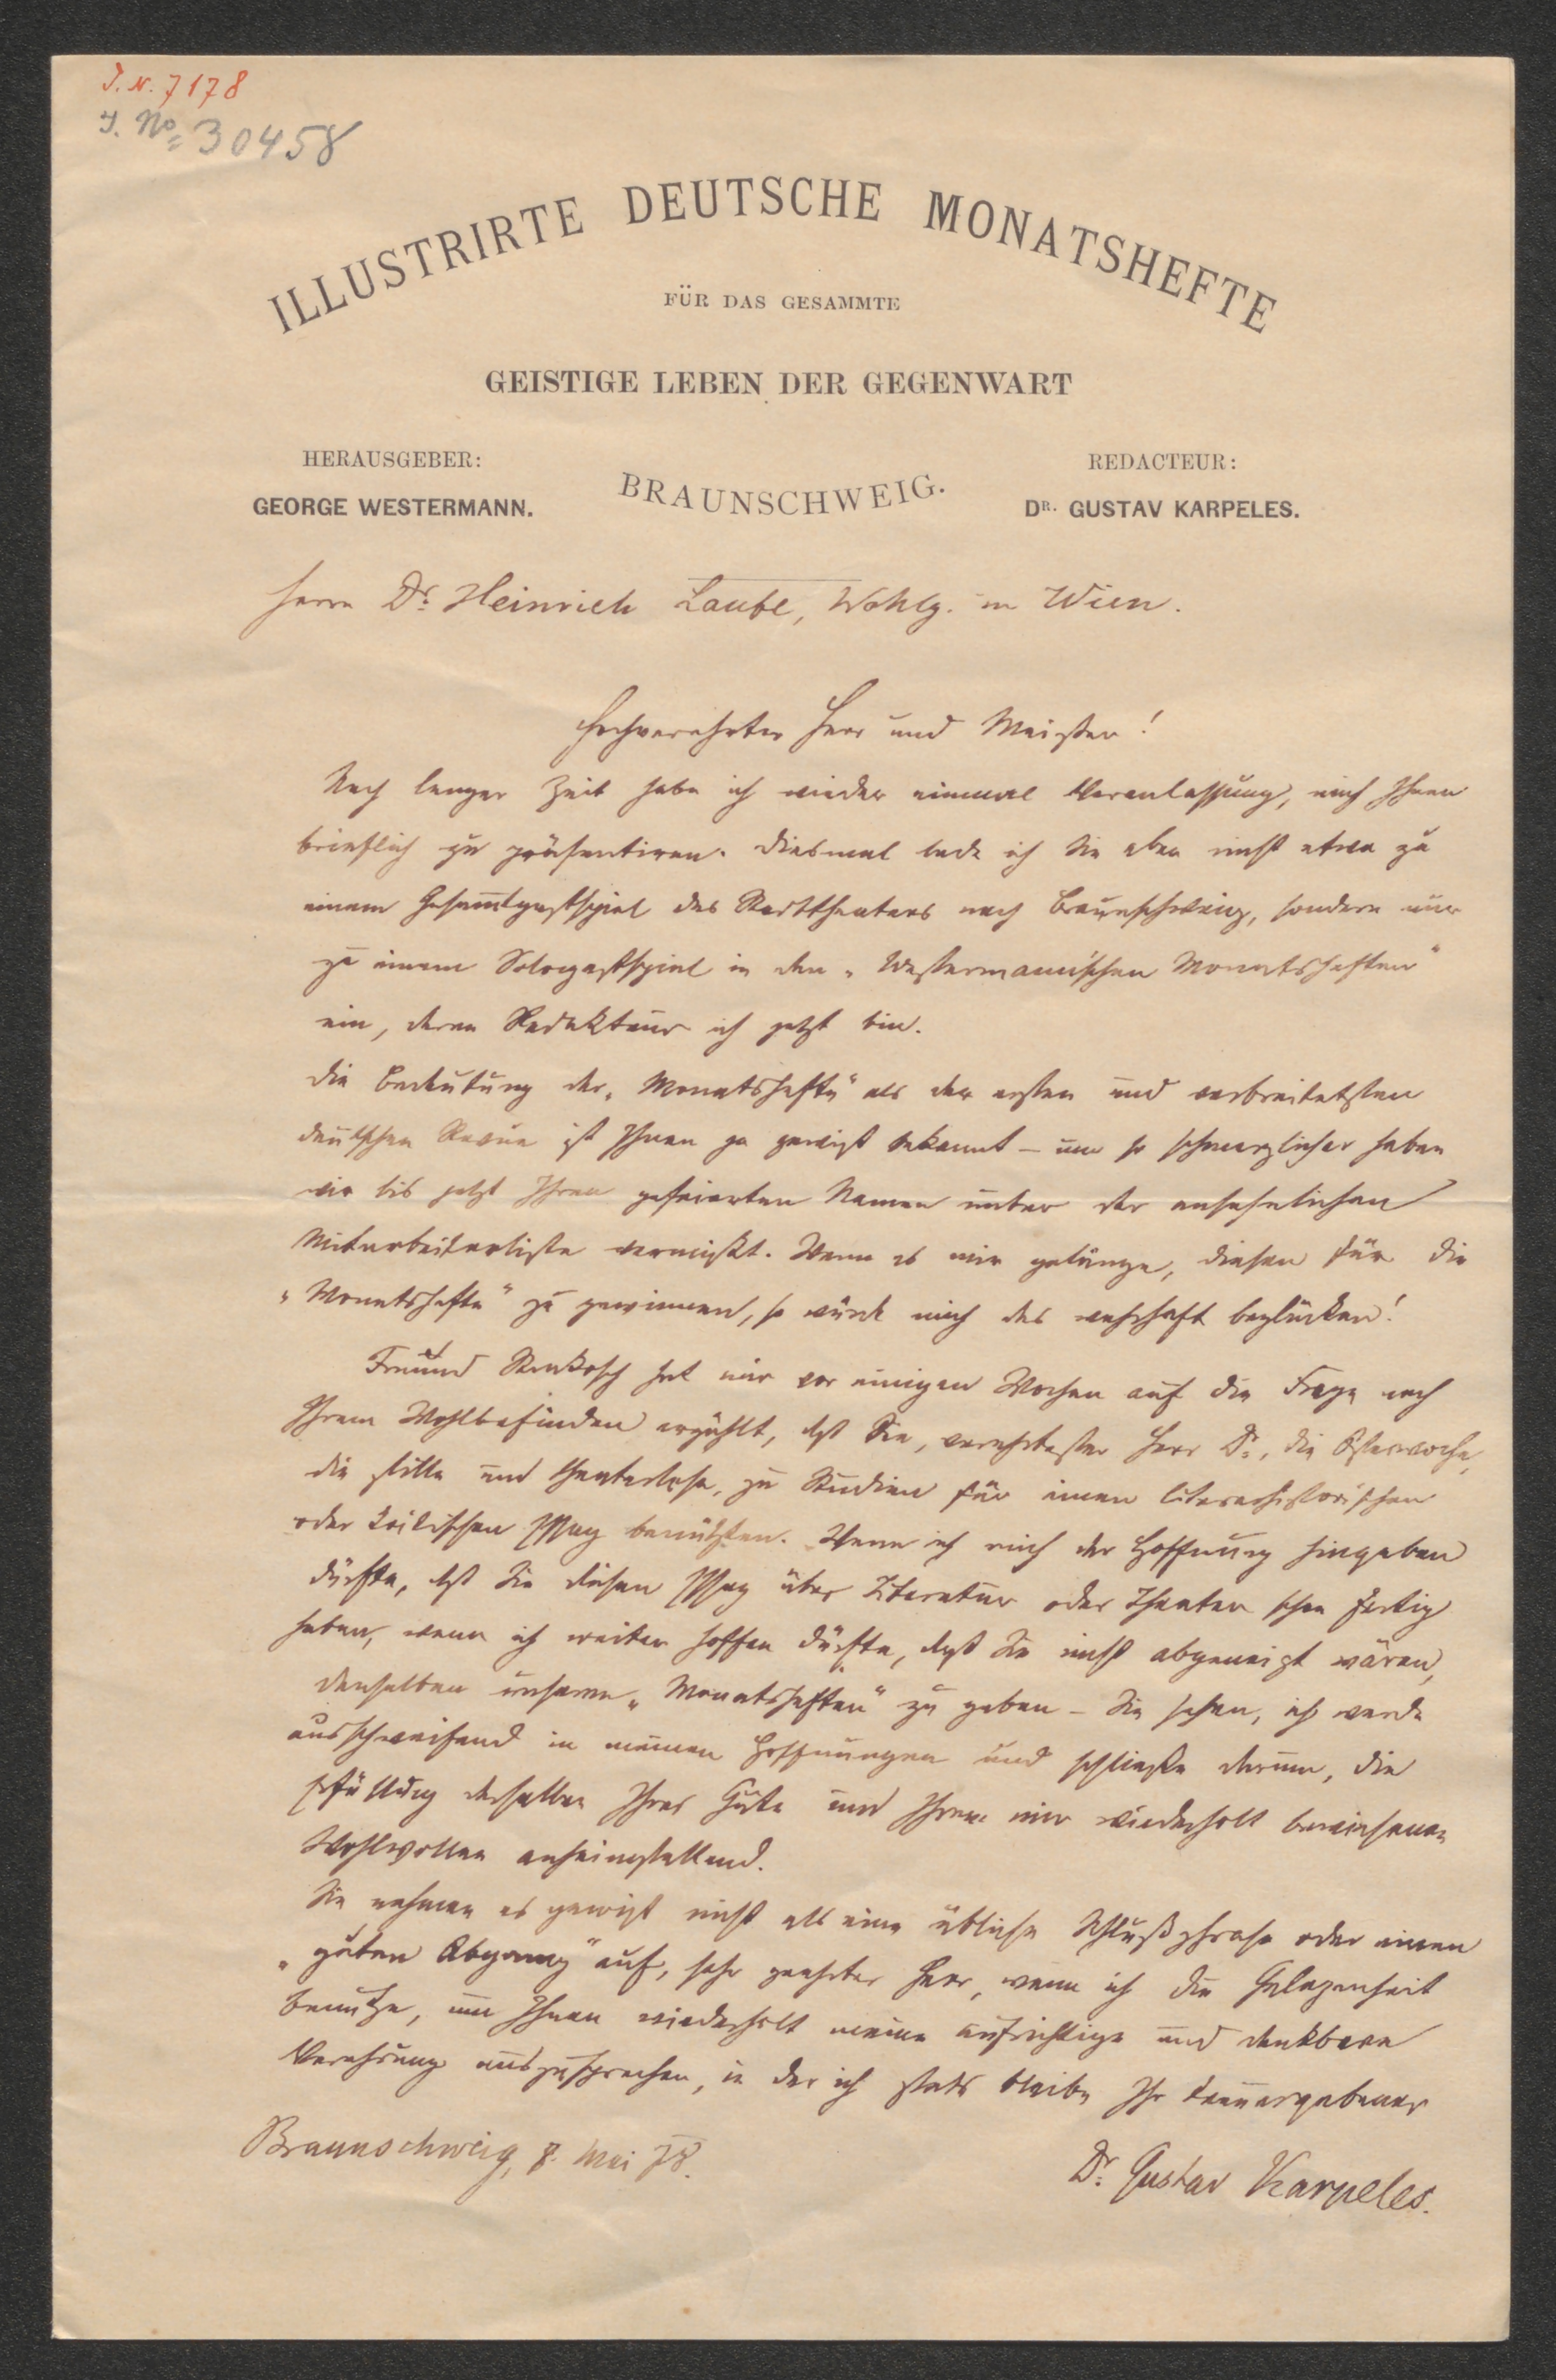 J. N. 7178
J. No 30458
ILLUSTRIRTE DEUTSCHE MONATSHEFTE
FÜR DAS GESAMMTE
GEISTIGE LEBEN DER GEGENWART
HERAUSGEBER:
GEORGE WESTERMANN.
BRAUNSCHWEIG.
REDACTEUR:
DR. GUSTAV KARPELES.
Herrn Dr. Heinrich Laube, Wohlg. in Wien.
Hochverehrter Herr und Meister!
Nach langer Zeit habe ich wieder einmal Veranlassung, mich Ihnen
brieflich zu präsentiren. Diesmal lade ich Sie aber nicht etwa zu
einem Gesamtgastspiel des Stadttheaters nach Braunschweig, sondern nur
zu einem Sologastspiel in den „Westermannischen Monatsheften"
ein, deren Redakteur ich jetzt bin.
Die Bedeutung der „Monatshefte" als der ersten und verbreitetsten
deutschen Revue ist Ihnen ja gewiß bekannt – um so schmerzlicher haben
wir bis jetzt Ihren gefeierten Namen unter der ansehnlichen
Mitarbeiterliste vermißt. Wenn es mir gelänge, diesen für die
„Monatshefte" zu gewinnen, so würde mich das wahrhaft beglücken!
Freund Strakosch hat mir vor einigen Wochen auf die Frage nach
Ihrem Wohlbefinden erzählt, daß Sie, verehrtester Herr Dr., die Osterwoche,
die stille und theaterlose, zu Studien für einen literarhistorischen
oder kritischen Essay benützten. Wenn ich mich der Hoffnung hingeben
dürfte, daß Sie diesen Essay über Literatur oder Theater schon fertig
haben, wenn ich weiter hoffen dürfte, daß Sie nicht abgeneigt wären,
denselben unseren „Monatsheften" zu geben – Sie sehen, ich werde
ausschweifend in meinen Hoffnungen und schließe darum, die
Erfüllung derselben Ihrer Güte und Ihrem mir wiederholt bewiesenen
Wohlwollen anheimstellend.
Sie nehmen es gewiß nicht als eine übliche Schlußphrase oder einen
„guten Abgang" auf, sehr geehrter Herr, wenn ich die Gelegenheit
benutze, um Ihnen wiederholt meine aufrichtige und dankbare
Verehrung auszusprechen, in der ich stets bleibe Ihr treuergebener
Braunschweig, 8. Mai 78.
Dr. Gustav Karpeles.